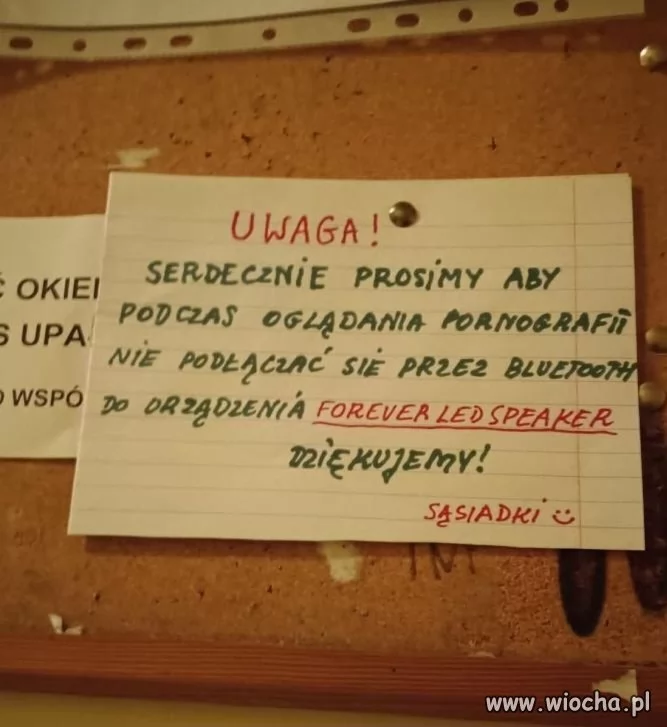 UWAGA!
SERDECZNIE PROSIMY ABY
PODCZAS OGLĄDANIA PORNOGRAFII
NIE PODŁĄCZAĆ SIĘ PRZEZ BLUETOOTH
DO URZĄDZENIA FOREVER LED SPEAKER
DZIĘKUJEMY!
SĄSIADKI :)
Ć OKIE
S UPA
WSPÓ
www.wiocha.pl